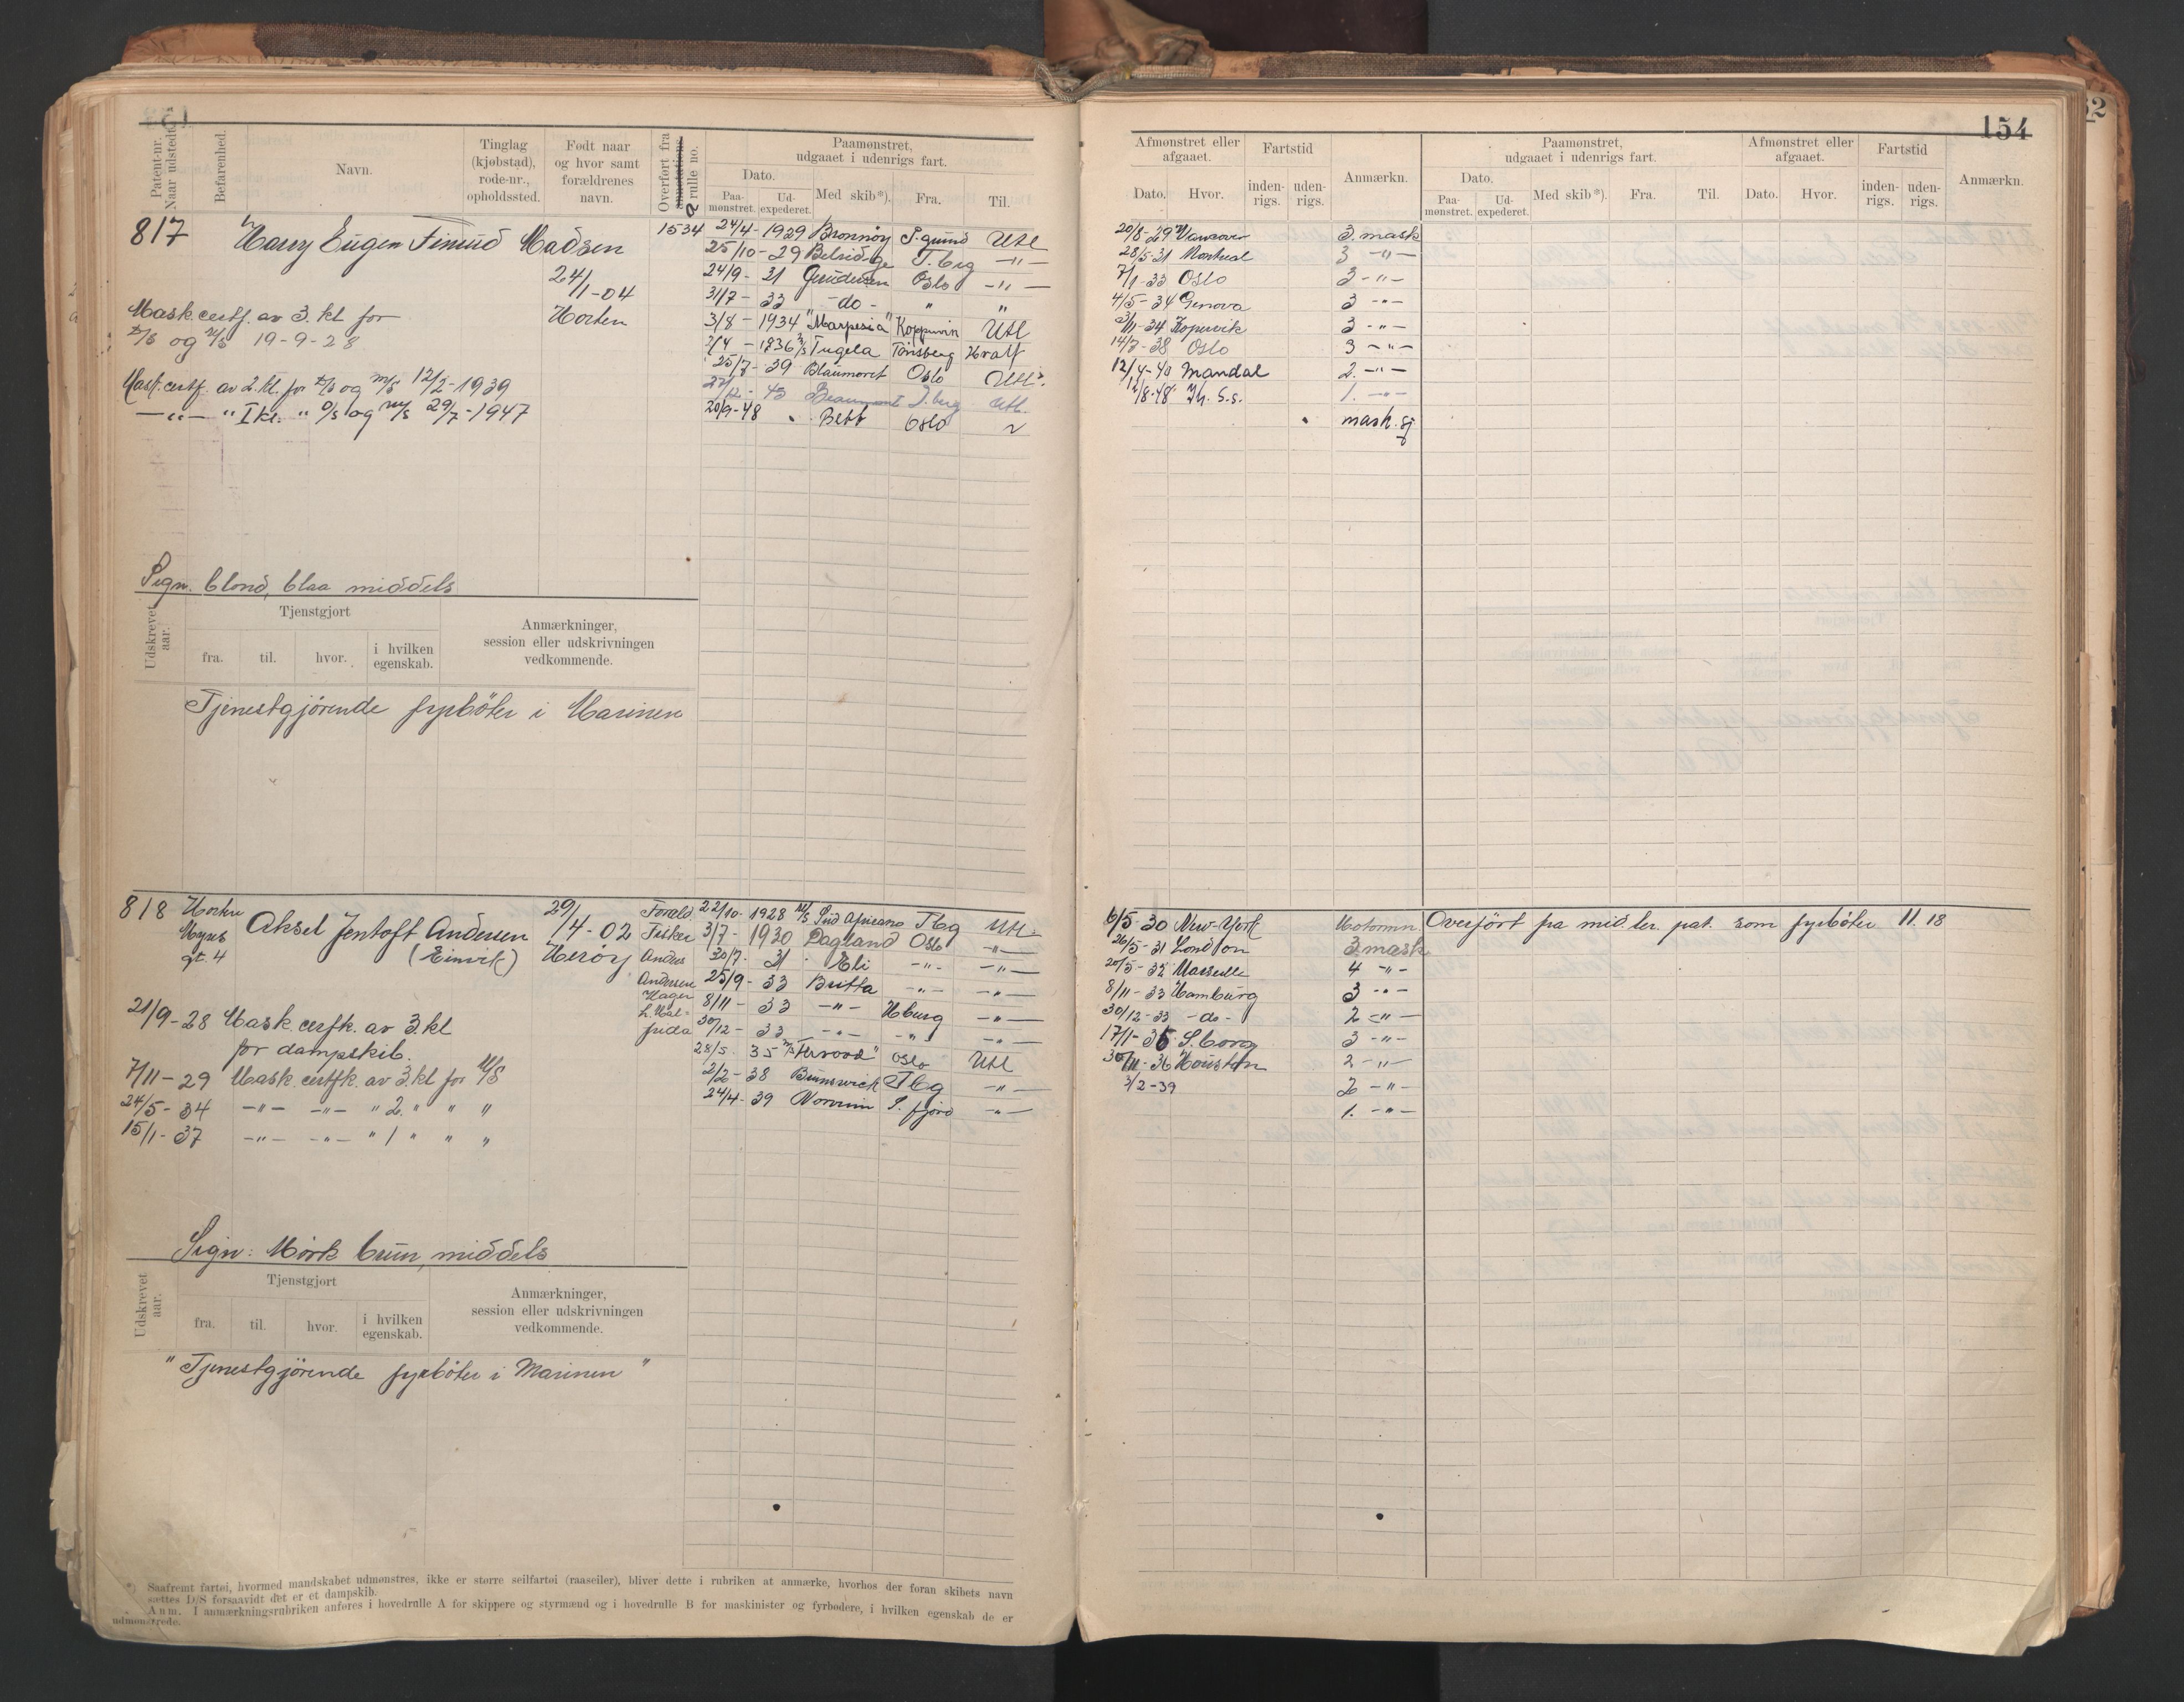 154
Patent-nr. Naar udstedt.
Befarenhed.
Navn.
Tinglag (kjøbstad), rode-nr., opholdssted.
Født naar og hvor samt forældrenes navn.
Overført fra annotations rulle no.
Paamønstret, udgaaet i udenrigs fart.
Dato.
Paa-mønstret.
Ud-expederet.
Med skib*).
Fra.
Til.
Afmønstret eller afgaaet.
Dato.
Hvor.
Fartstid
inden-rigs.
uden-rigs.
Anmærkn.
Paamønstret, udgaaet i udenrigs fart.
Dato.
Paa-mønstret.
Ud-expederet.
Med skib*).
Fra.
Til.
Afmønstret eller afgaaet.
Dato.
Hvor.
Fartstid
inden-rigs.
uden-rigs.
Anmærkn.
817 Harry Eugen Finud Madsen 1534
24/1-04
Horten
Mask. certf. av 3. kl for
D/S og M/S 19-9-28
Mask. certf. av 2. kl. for D/S og M/S 12/2-1939
-"- " I kl. " D/S og M/S 29/7-1947
24/4-1929 Bronnöy P.grund Utl
25/10-29 Belridge T.brg -"-
24/9-31 Gundersen Oslo -"-
31/7-33 -do- " "
3/8-1934 "Marpesia" Koppervik Utl
7/4-1936 Tugela Tönsberg Hvalf
25/7-39 Blaumoret Oslo Utl.
-45 Beaumont T.brg Utl.
20/9-48 " Bett Oslo
20/8-29 Vancover 3. mask
28/5-31 Montreal 3 -"-
7/1-33 Oslo 3 -"-
4/5-34 Genova 3 -"-
3/11-34 Kopervik 3 -"-
14/7-38 Oslo 3 -"-
12/4-40 Mandal 2. -"-
12/8-48 Kh. S.s. 1. -"-
mask. sj
Sign. blond, blaa middels
Udskrevet aar.
Tjenstgjort
fra.
til.
hvor.
i hvilken egenskab.
Anmærkninger, session eller udskrivningen vedkommende.
Tjenestgjörende fyrböter i Marinen
818 Horten Aksel Jentoft Andersen 29/4-02
gt. 4 (Einvik) Heröy
Foræld. Fisker Andres Andersen Hagen
21/9-28 Mask. cerfk. av 3. kl
for dampskib.
7/11-29 Mask. certfk. av 3. kl for M/S
24/5-34 -"- -"- " 2. " " "
15/1-37 -"- -"- " 1 " " "
22/10-1928 M/S Sud Africano Tbg Utl
3/7-1930 Dagland Oslo -"-
30/7-31 Eli -"- -"-
25/9-33 Butta -"- -"-
8/11-33 -"- Hburg -"-
30/12-33 -"- -"- -"-
28/5 35 Oslo Utl
2/2-38 Brunswick Tbg -"-
24/4-39 S.fjord -"-
6/5-30 New-York Motormn.
26/5-31 London 3. mask
20/5-32 Marseille 4 -"-
8/11-33 Hamburg 3 -"-
30/12-33 -do- 2 -"-
17/1-35 S.borg 3 -"-
30/11-36 Houston 2 -"-
3/2-39 2 -"-
1. -"-
Overfört fra mid. ler. pat. som fyrböter 11. 18
Sign: Mörk brun, middels
Udskrevet aar.
Tjenstgjort
fra.
til.
hvor.
i hvilken egenskab.
Anmærkninger, session eller udskrivningen vedkommende.
"Tjenestgjörende fyrböter i Marinen"
*) Saafremt fartøi, hvormed mandskabet udmønstres, ikke er større seilfartøi (raaseiler), bliver dette i rubriken at anmærke, hvorhos der foran skibets navn
sættes D/S forsaavidt det er et dampskib.
Anm. I anmærkningsrubriken anføres i hovedrulle A for skippere og styrmænd og i hovedrulle B for maskinister og fyrbødere, i hvilken egenskab de er
udmønstrede.